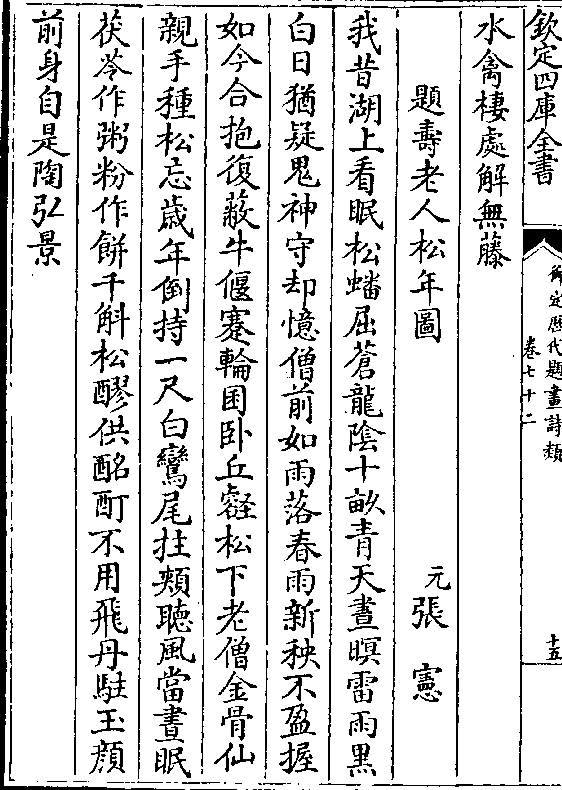 欽定四庫全書
御定歷代題畫詩類
卷七十二
十五
水禽棲處解無藤
題壽老人松年圖
元張憲
我昔湖上看眠松蟠屈蒼龍陰十畝青天晝暝雷雨黑
白日猶疑鬼神守却憶僧前如雨落春雨新秧不盈握
如今合抱復蔽牛偃蹇輪囷卧丘壑松下老僧金骨仙
親手種松忘歲年倒持一尺白鸞尾拄頰聽風當晝眠
茯苓作粥粉作餅千斛松醪供酩酊不用飛丹駐玉顔
前身自是陶弘景